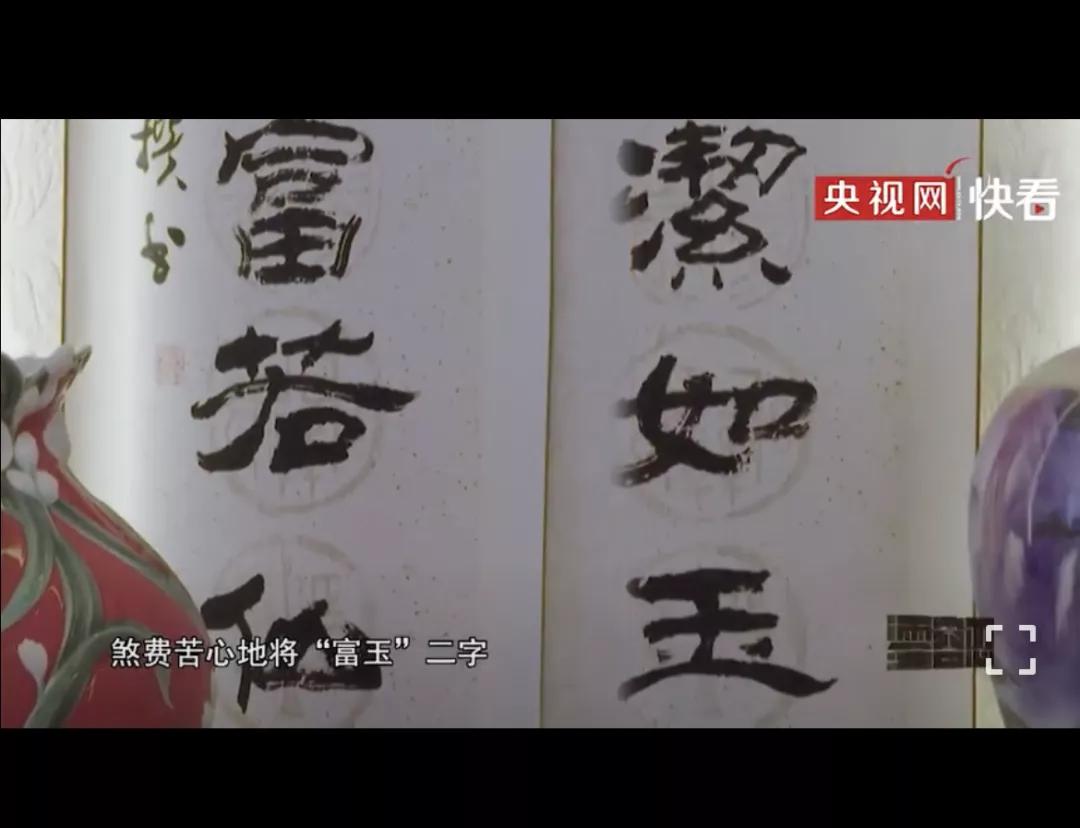 央视网 快看
潔如玉
富若仙
撰书
煞费苦心地将“富玉”二字